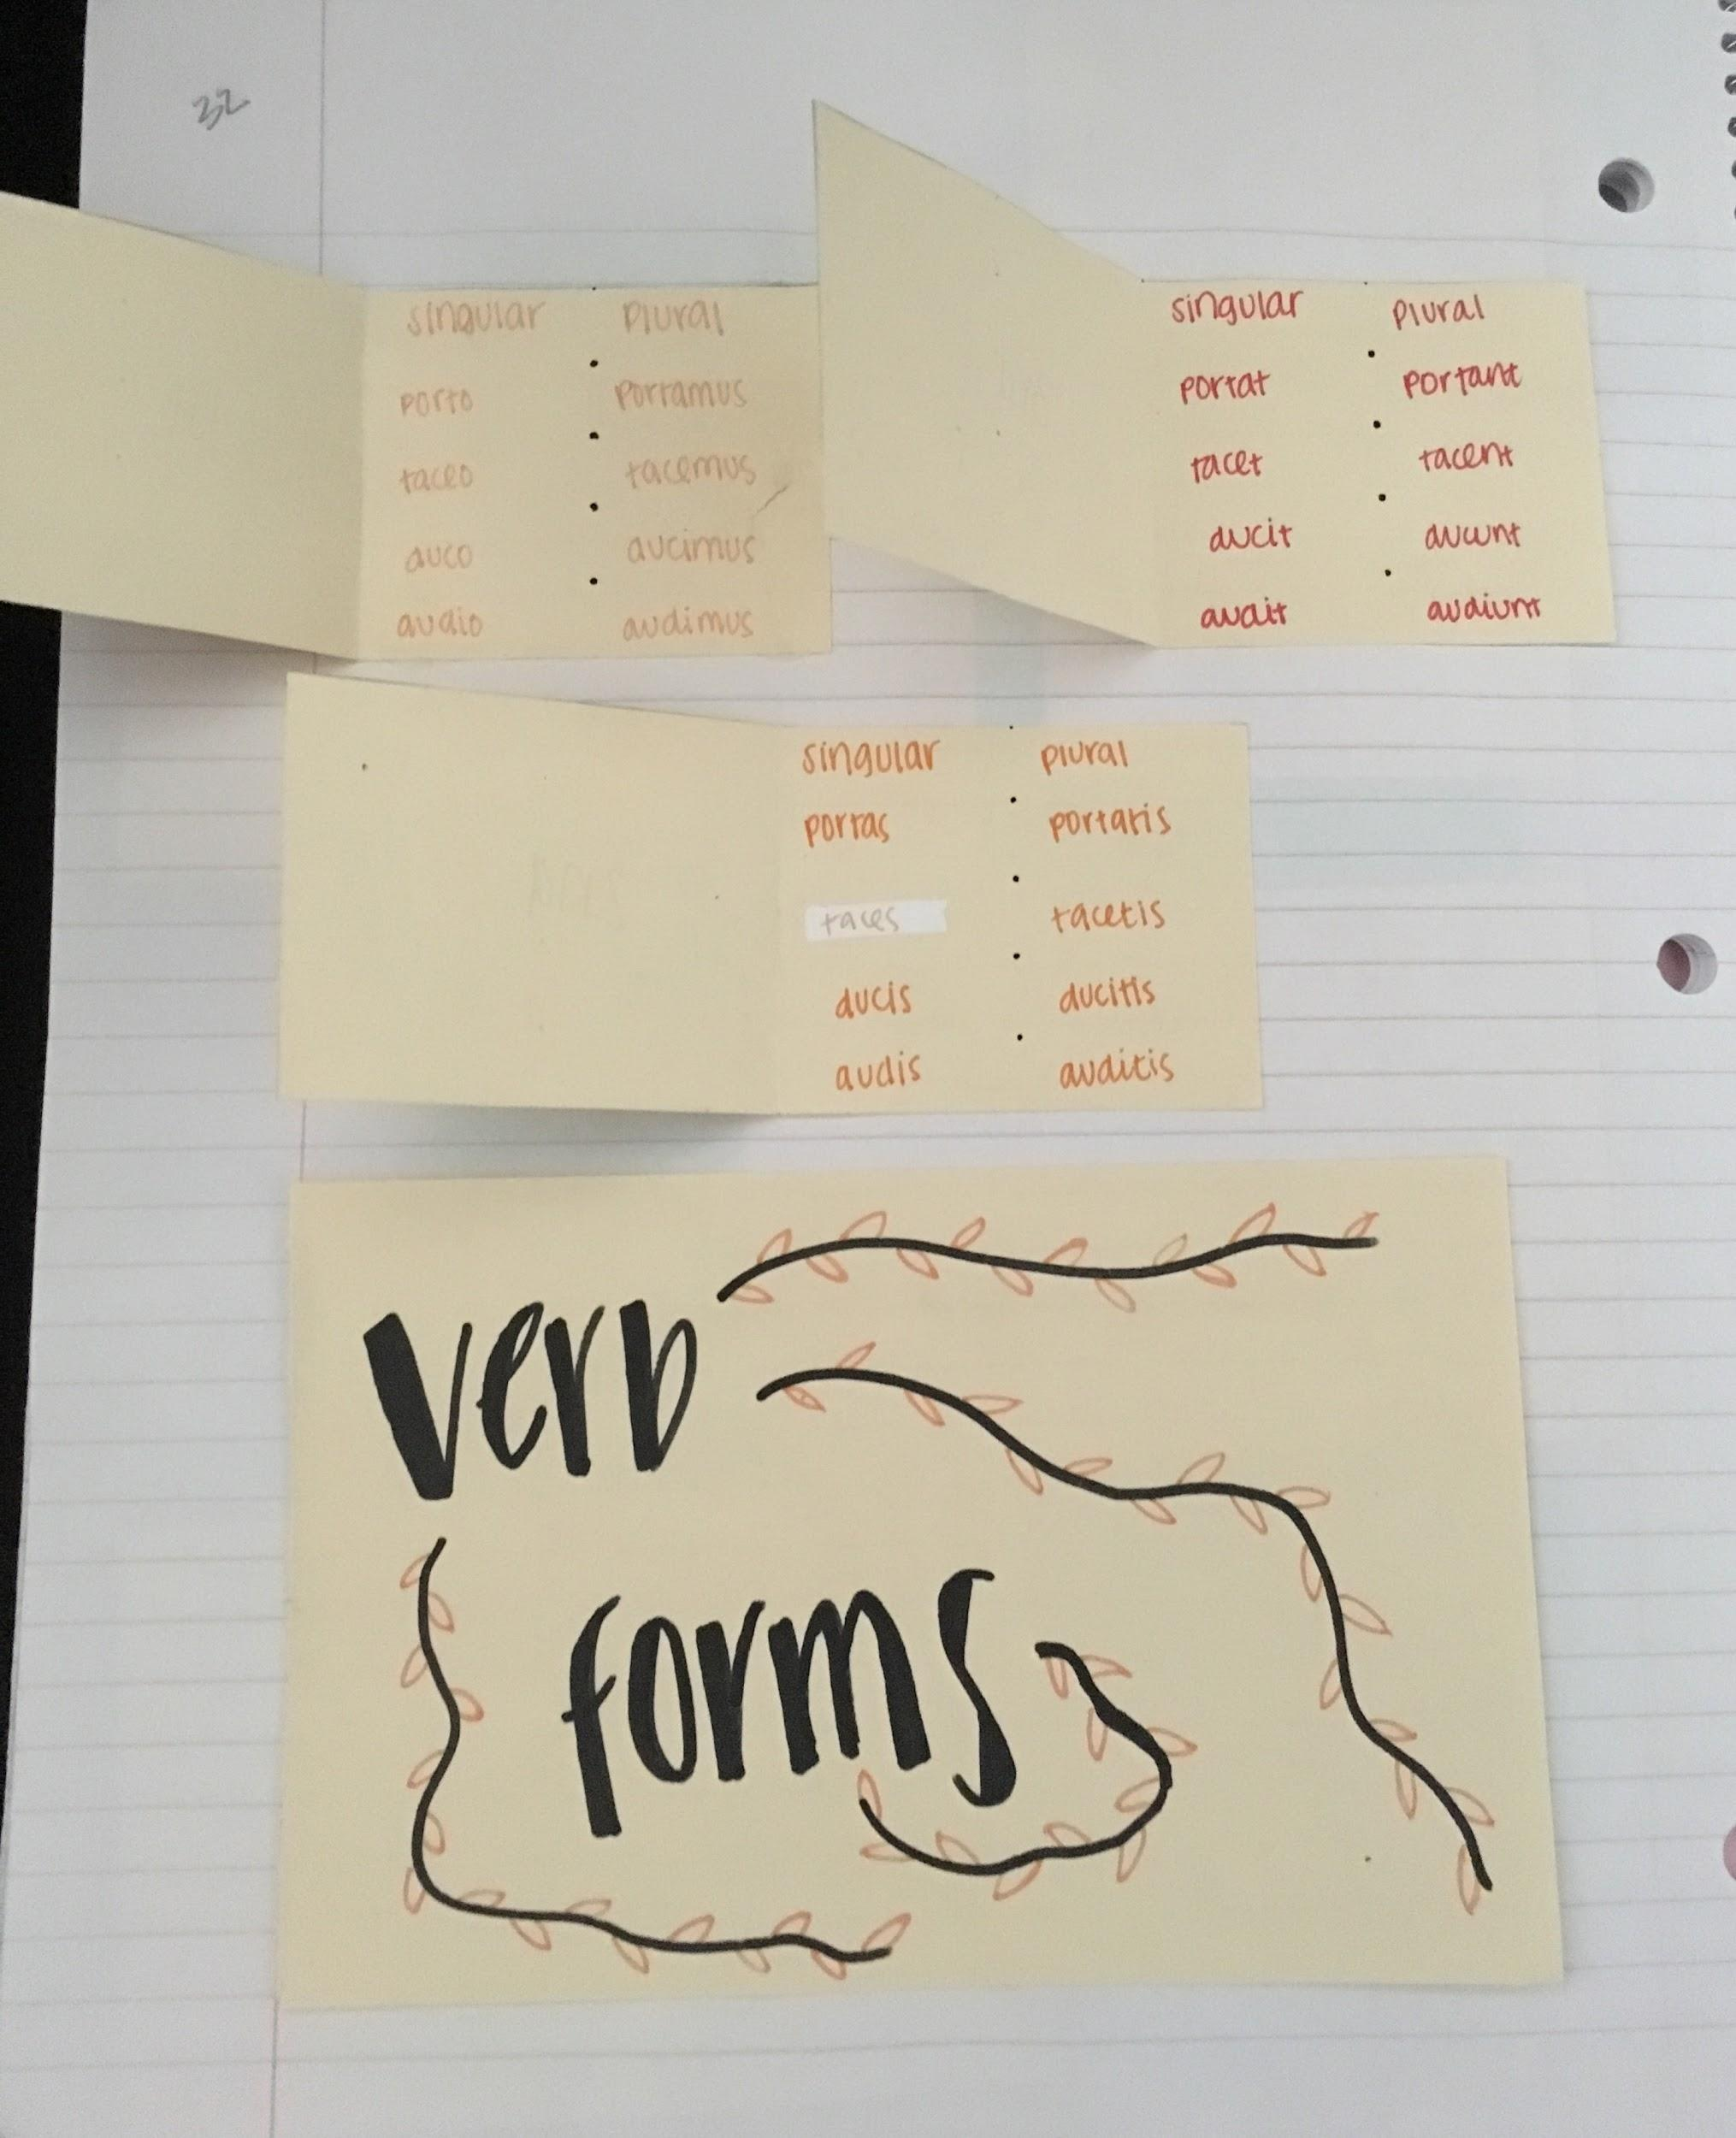 32
singular plural
porto portamus
taceo tacemus
duco ducimus
audio audimus
singular plural
portat portant
tacet tacent
ducit ducunt
audit audiunt
singular plural
portas portatis
taces tacetis
ducis ducitis
audis auditis
verb
forms